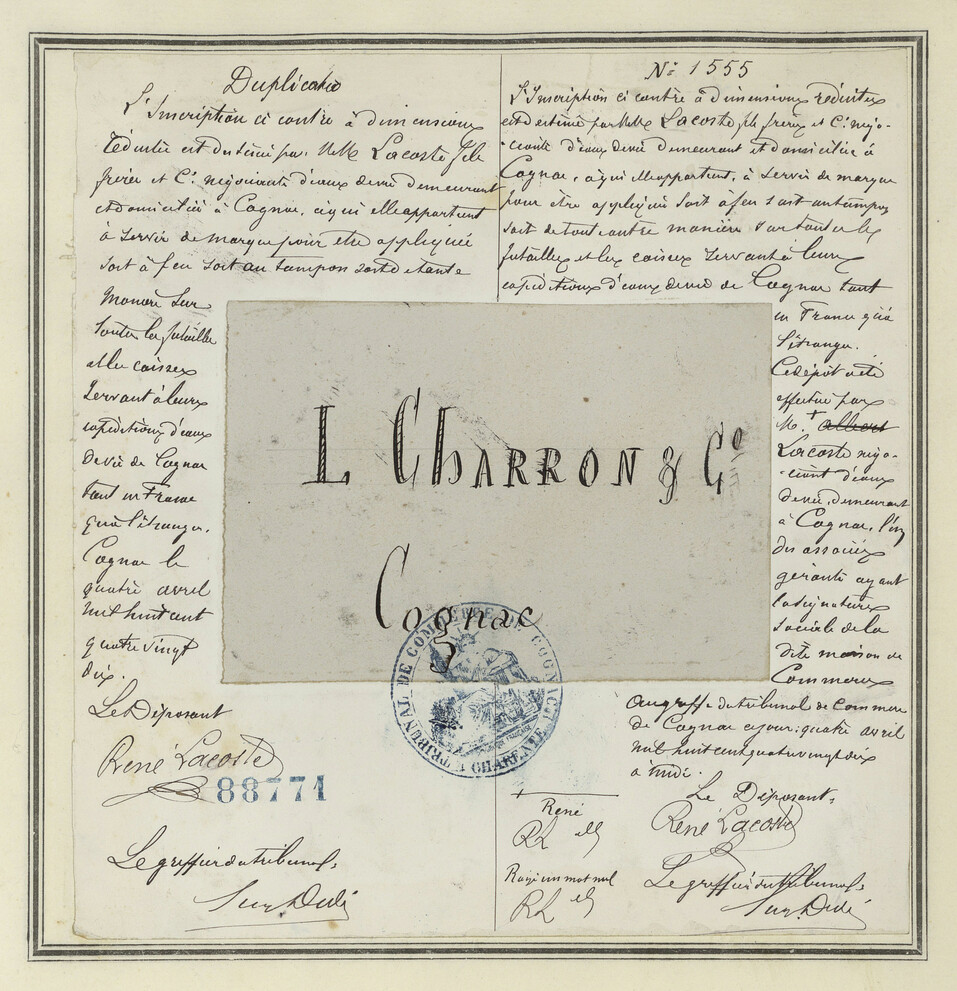 Duplicata
L'Inscription ci contre à dimensions
réduites est destinée par MM Lacoste fils
frères et Cie négociants d'eaux de vie demeurant
et domiciliés à Cognac, à qui elle appartient
à servir de marque pour être appliquée
soit à feu soit au tampon soit de toute
manière sur
toutes les futailles
et les caisses
servant à leurs
expéditions d'eaux
de vie de Cognac
tant en France
qu'à l'étranger.
Cognac le
quatre avril
mil huit cent
quatre vingt
dix.
Le Déposant
René Lacoste
88771
Le greffier du tribunal,
Nº 1555
L'Inscription ci contre à dimensions réduites
est destinée par MM Lacoste fils frères et Cie négo-
-ciants d'eaux de vie demeurant et domiciliés à
Cognac, à qui elle appartient, à servir de marque
pour être appliquée soit à feu soit au tampon
soit de toute autre manière sur toutes les
futailles et les caisses servant à leurs
expéditions d'eaux de vie de Cognac tant
en France qu'à
l'étranger.
Ce dépôt a été
effectué par
M. + Albert
Lacoste négo-
-ciant d'eaux
de vie, demeurant
à Cognac, l'un
des associés
gérants ayant
la signature
sociale de la
dite maison de
Commerce
Au greffe du tribunal de commerce
de Cognac ce jour: quatre avril
mil huit cent quatre vingt dix
à midi.
Le Déposant,
René Lacoste
Le greffier du tribunal,
+
René
RL
Rayé un mot nul
RL
L CHARRON & Cº
Cognac
TRIBUNAL DE COMMERCE DE COGNAC
CHARENTE